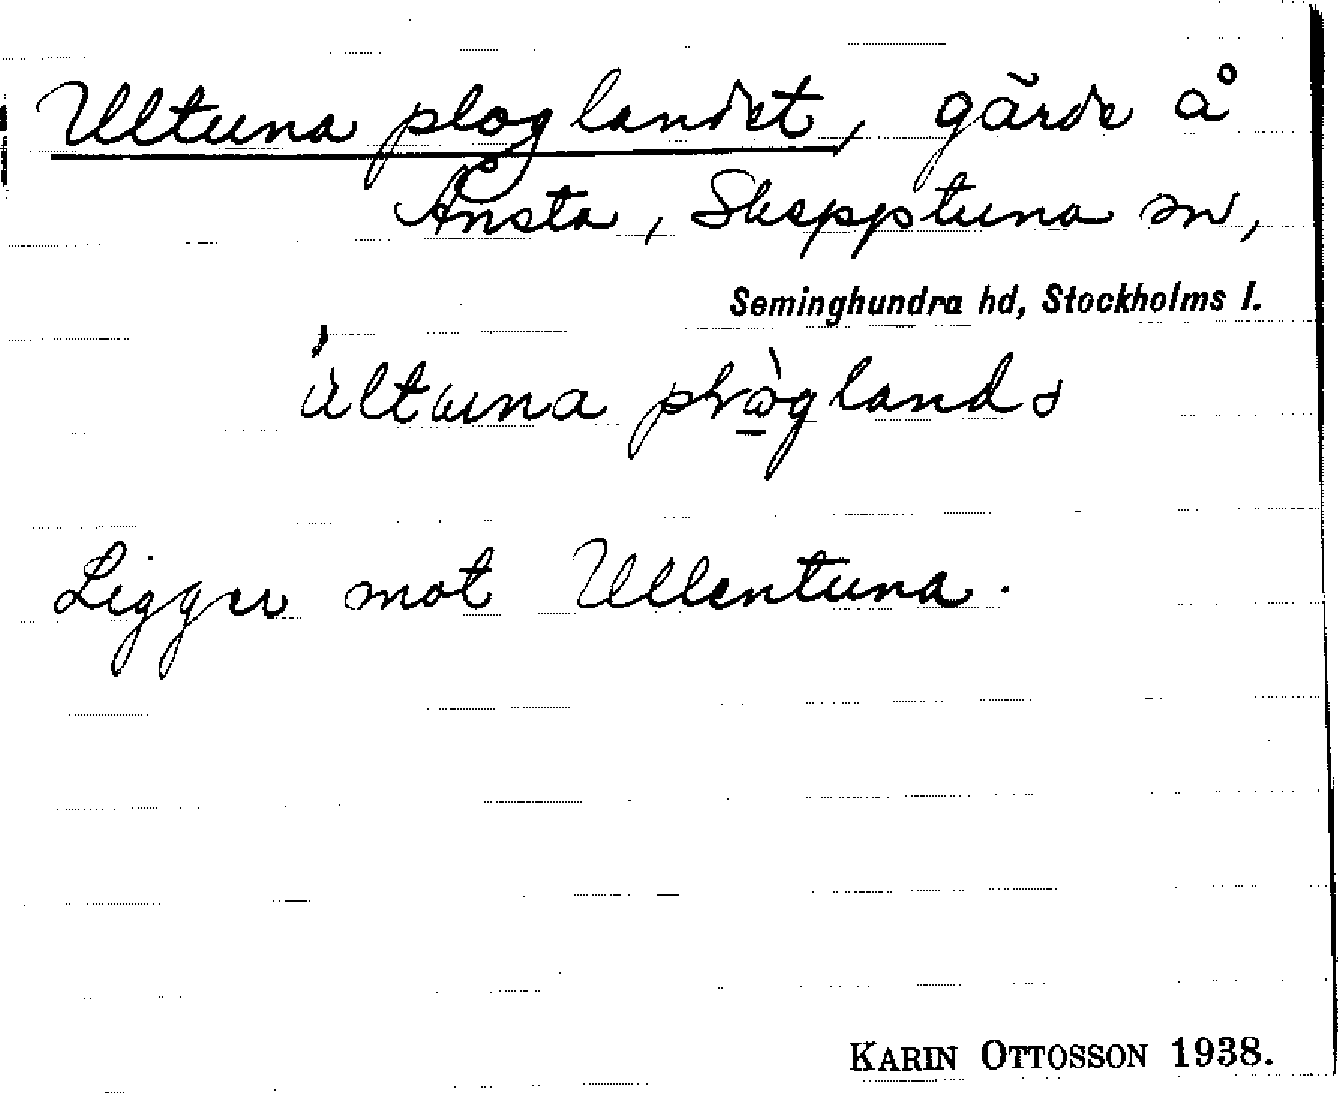 Ultuna ploglandet, gärde å
Ånsta, Skepptuna sn,
Seminghundra hd, Stockholms l.
Ligger mot Ullentuna.
KARIN OTTOSSON 1938.